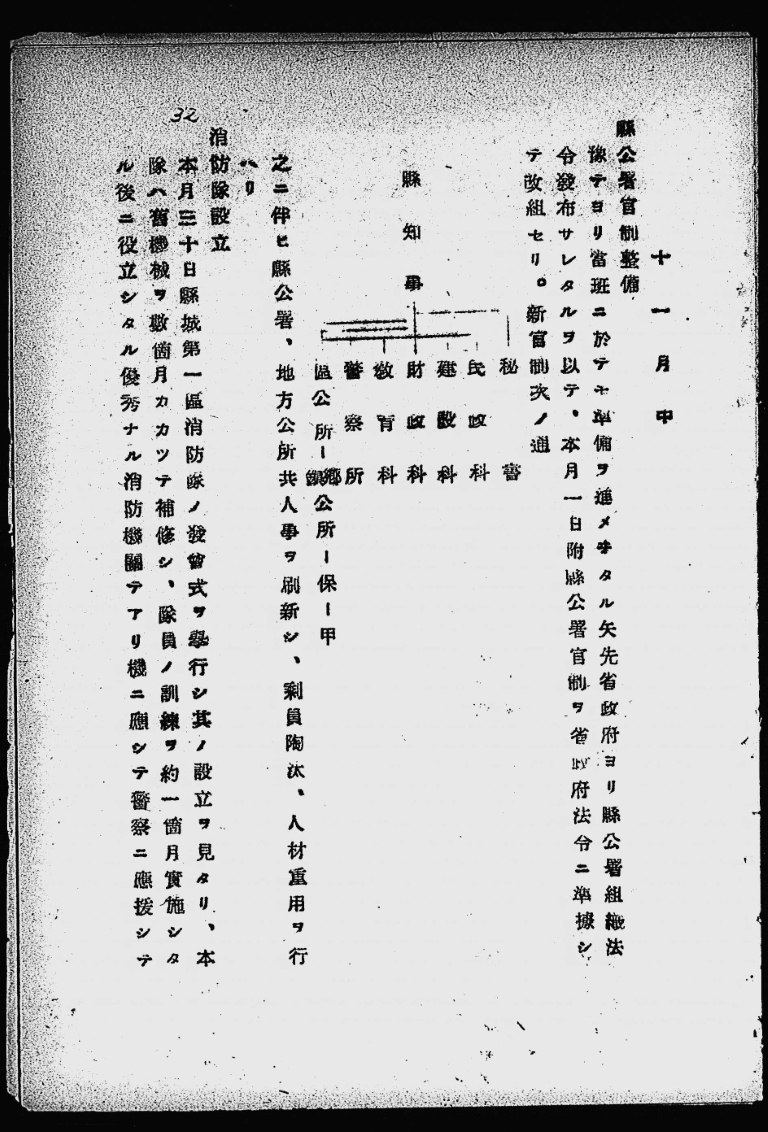 十一月中
縣公署官制整備
豫テヨリ當班ニ於テモ準備ヲ進メヰタル矢先省政府ヨリ縣公署組織法
令發布サレタルヲ以テ、本月一日附縣公署官制ヲ省政府法令ニ準據シ
テ改組セリ。新官制次ノ通
縣知事
秘書
民政科
建設科
財政科
教育科
警察所
區公所ー鄕鎭公所ー保ー甲
之ニ伴ヒ縣公署、地方公所共人事ヲ刷新シ、剩員陶汰、人材重用ヲ行
ハリ
消防隊設立
本月三十日縣城第一區消防隊ノ發會式ヲ擧行シ其ノ設立ヲ見タリ、本
隊ハ舊機械ヲ數箇月カカツテ補修シ、隊員ノ訓練ヲ約一箇月實施シタ
ル後ニ役立シタル優秀ナル消防機關テアリ機ニ應シテ警察ニ應援シテ
32